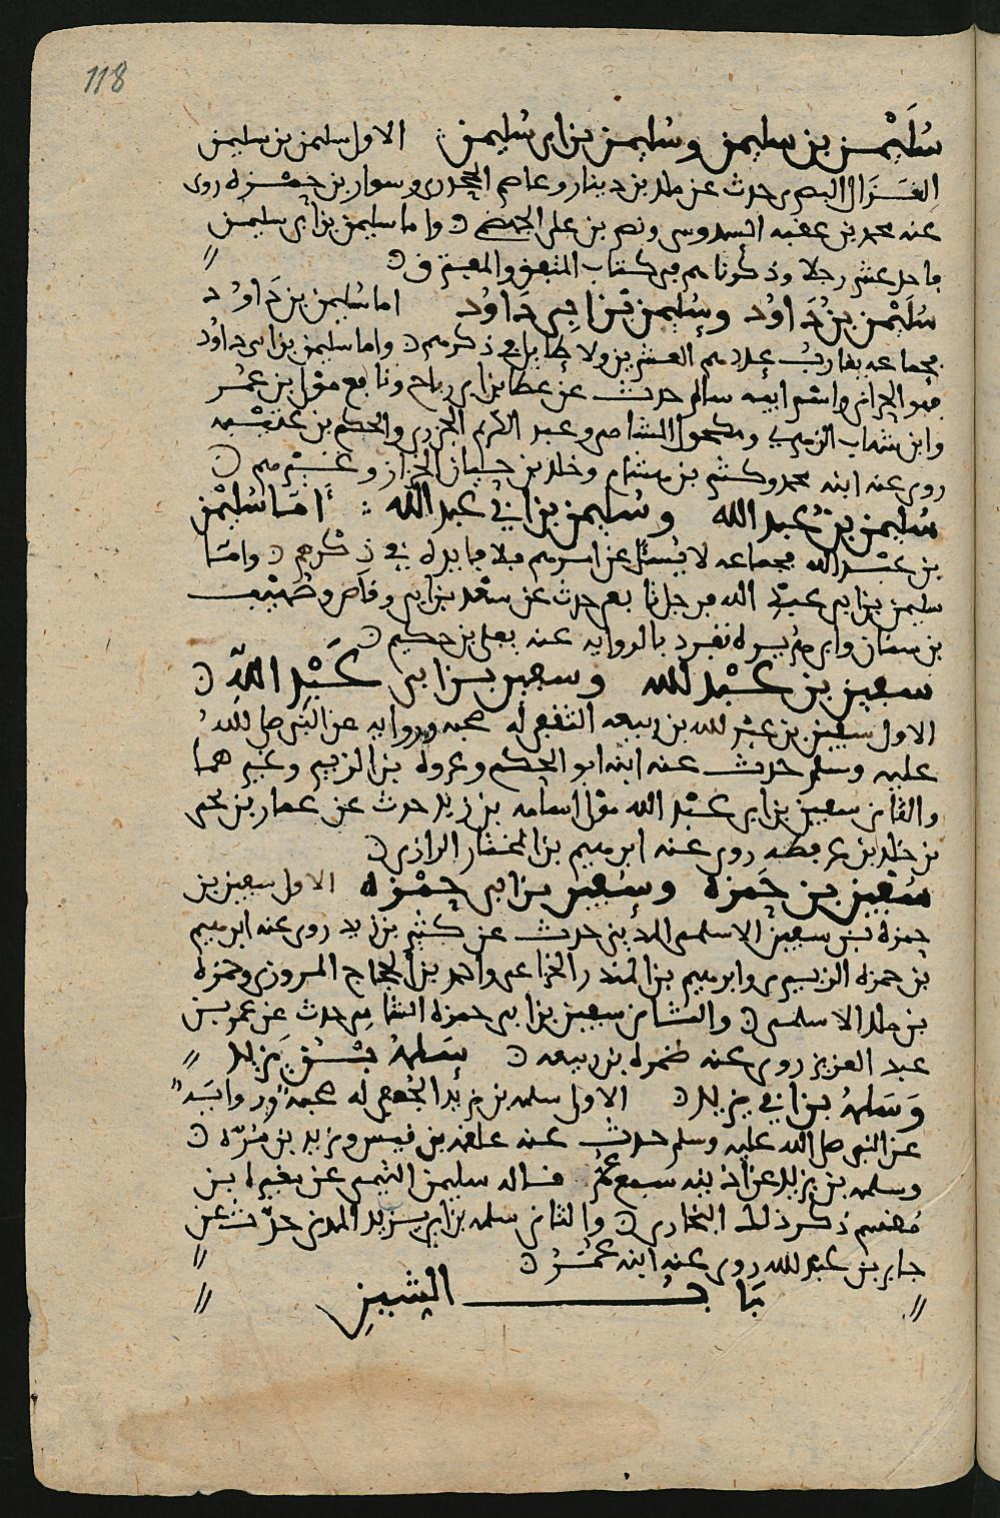 118
سُلَيْمن بن سليمن وسُليمن بن ابي سُليمن الاول سليمن بن سليمن
الغَزال البصري حدث عن ملك بن دينار وعاصم الجحدري وسوار بن حمزه روى
عنه محمد بن عقبه السدوسي ونصر بن علي الجهضمي واما سليمن بن ابي سليمن
فاحد عشر رجلا وذكرناهم في كتاب المتفق والمفترق
سُلَيْمن بن دَاوُد وسُليمن بن ابي دَاوُد اما سُليمن بن دَاوُد
فجماعه يقارب عددهم العشرين ولا طايل في ذكرهم واما سليمن بن ابي داوُد
فهو الحراني واسم ابيه سالم حدث عن عطا بن ابي رباح ونافع مولى بن عمر
وابن شهاب الزهري ومكحول الشامي وعبد الكريم الجزري والحكم بن عتيبه
روى عنه ابنه محمد وكثير بن هشام وخلد بن حيان الخراز وغيرهم
سُليمن بن عبد الله وسُليمن بن ابي عبد الله امَا سُليْمن
بن عبد الله فجماعه لا يُسئل عن اسرهم فلا فايده في ذكرهم وامَا
سليمن بن ابي عبد الله فرجل تابعي حدث عن سعد بن ابي وقاص وصُهَيْب
بن سنان وابي هريره تفرد بالروايه عنه يعلى بن حكيم
سفين بن عَبْد الله وسفين بن ابي عَبْد الله
الاول سفين بن عبد الله بن ربيعه الثقفي له صحبه وروايه عن النبي صلى الله
عليه وسلم حدث عنه ابنه ابو الحكم وعروه بن الزبير وغيرهما
والثاني سفين بن ابي عبْد الله مولى اسامه بن زيد حدث عن عمار بن
بن خلد بن عرفطه روى عنه ابرهيم بن المختار الرازي
سُفين بن حَمزه وسُفين بن ابي حمْزه الاول سفين بن
حمزه بن سفين الاسلمي المديني حدث عن كثير بن زيد روى عنه ابرهيم
بن حمزه الزبيري وابرهيم بن المنذر الخزاعي واحمد بن الحجاج المروزي وحمزه
بن ملك الاسلمي والثاني سفين بن ابي حمزه الشامي حدث عن عمر بن
عبد العزيز روى عنه ضمره بن ربيعه سَلمهُ بن يَزيد
وَسَلمهُ بن ابي يزيد الاول سلمه بن يزيد الجُعفي له صحبه وروايَه
عن النبي صلى الله عليه وسلم حدث عنه علقمه بن قيس ويزيد بن مُرّه
وسلمه بن يزيد عن اذينه سمع عُمَر قاله سليمن التيمي عن مغيره بن
مقسم ذكر ذلك البخاري والثاني سلمه بن ابي يزيد المدني حدّث عن
جابر بن عبد الله روى عنه ابنه عُمَر
بَابُ الشين